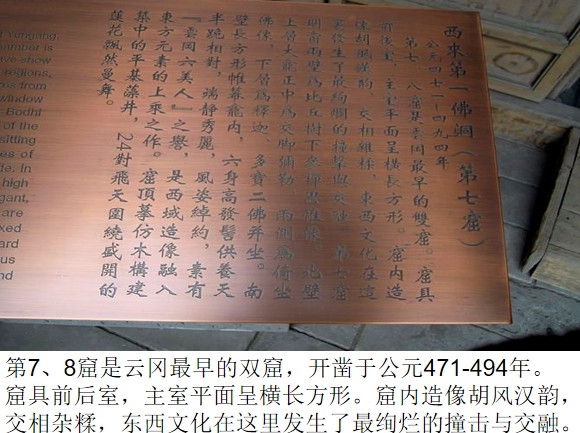 西來第一佛洞(第七窟)
公元四七一—四九四年
第七、八窟是雲岡最早的雙窟。窟具
前後室，主室平面呈橫長方形。窟内造
像胡風漢韵，交相雜糅，東西文化在這
裏發生了最絢爛的撞擊與交融。第七窟
前兩壁爲比丘樹下像，北壁
上層大龕正中爲交脚彌勒，兩側爲倚坐
佛像，下層爲釋迦、多寶二佛并坐。南
壁長方形帷幕龕内，六身高髮髻供養天
半跪相對，端静秀麗，風姿綽約，素有
『雲岡六美人』之譽，是西域造像融入
東方元素的上乘之作。窟頂摹仿木構建
築中的平棊藻井，24對飛天圍繞盛開的
蓮花飄然曼舞。
Yungang.
amber is
ve show
regions,
s from
window
Bodhi
of the
sitting
es of
de. In
high
gant,"
are
xed
ard
us
nd
第7、8窟是云冈最早的双窟，开凿于公元471-494年。
窟具前后室，主室平面呈横长方形。窟内造像胡风汉韵，
交相杂糅，东西文化在这里发生了最绚烂的撞击与交融。